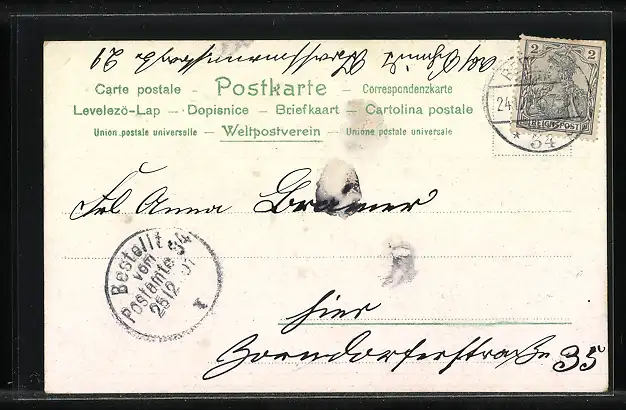 Carte postale — Postkarte — Correspondenzkarte
Levelezö-Lap — Dopisnice — Briefkaart — Cartolina postale
Union postale universelle — Weltpostverein — Unione postale universale
2 2
REICHSPOST
24.
* 54
Frl Anna Bremer
Bestellt
vom
Postamte 34
2512 01
hier
Zorndorferstraße 35